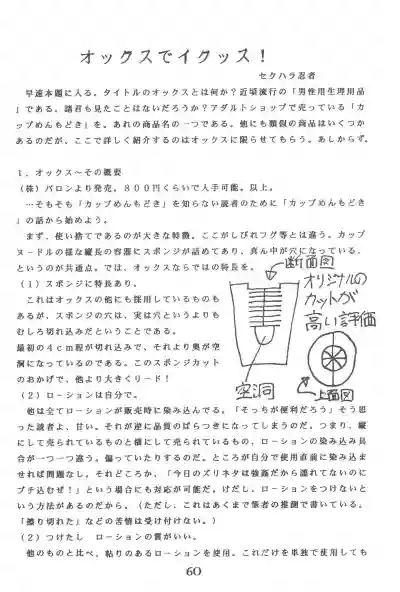 オックスでイクッス！
セクハラ忍者
早速本題に入る。タイトルのオックスとは何か？近頃流行の「男性用生理用品
」である。諸君も見たことはないだろうか？アダルトショップで売っている「カ
ップめんもどき」を。あれの商品名の一つである。他にも類似の商品はいくつか
あるのだが、ここで詳しく紹介するのはオックスに限らせてもらう。あしからず。
1．オックス～その概要
（株）バロンより発売。８００円くらいで入手可能。以上。
…そもそも「カップめんもどき」を知らない読者のために「カップめんもどき」
の話から始めよう。
まず、使い捨てであるのが大きな特徴。ここがしびれフグ等とは違う。カップ
ヌードルの様な縦長の容器にスポンジが詰めてあり、真ん中が穴になっている、
というのが共通点。では、オックスならではの特長を。
（１）スポンジに特長あり。
これはオックスの他にも採用しているものも
あるが、スポンジの穴は、実は穴というよりも
むしろ切れ込みだということである。
最初の４ｃｍ程が切れ込みで、それより奥が空
洞になっているのである。このスポンジカット
のおかげで、他より大きくリード！
断面図
オリジナルの
カットが
高い評価
空洞
上面図
（２）ローションは自分で。
他は全てローションが販売時に染み込んでる。「そっちが便利だろう」そう思
った読者よ、甘い。それが逆に品質のばらつきになってしまうのだ。つまり、縦
にして売られているものと横にして売られているもの、ローションの染み込み具
合が一つ一つ違う。偏っていたりするのだ。ところが自分で使用直前に染み込ま
せれば問題なし。それどころか、「今日のズリネタは強姦だから濡れてないのに
ブチ込むぜ！」という場合にも対応が可能だ。けだし、ローションをつけないと
いう方法があるのだから。（ただし、これはあくまで筆者の推測で書いている。
「擦り切れた」などの苦情は受け付けない。）
（２）つけたし　ローションの質がいい。
他のものと比べ、粘りのあるローションを使用。これだけを単独で使用しても
60